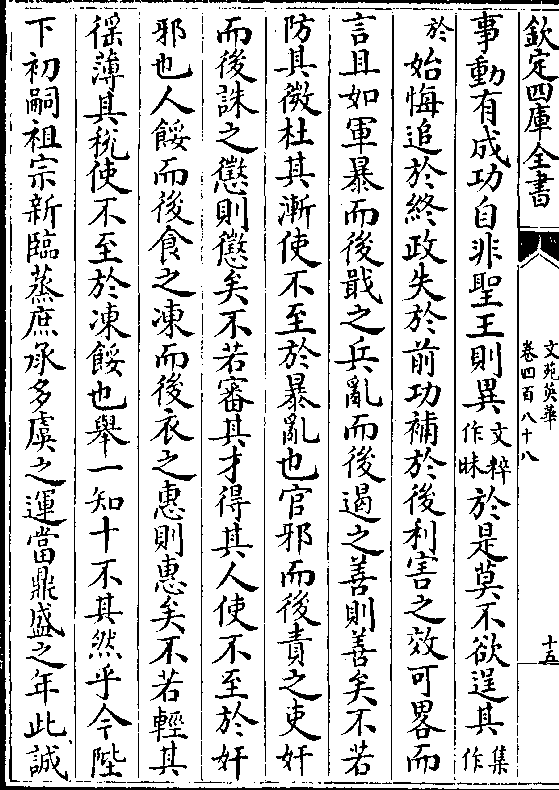 欽定四庫全書
文苑英華
卷四百八十八
十五
事動有成功自非聖王則異文粹作昧於是莫不欲逞其集作
於始悔追於終政失於前功補於後利害之效可畧而
言且如軍暴而後戢之兵亂而後遏之善則善矣不若
防其微杜其漸使不至於暴亂也官邪而後責之吏奸
而後誅之懲則懲矣不若審其才得其人使不至於奸
邪也人餒而後食之凍而後衣之惠則惠矣不若輕其
徭薄其稅使不至於凍餒也舉一知十不其然乎今陛
下初嗣祖宗新臨蒸庶承多虞之運當鼎盛之年此誠